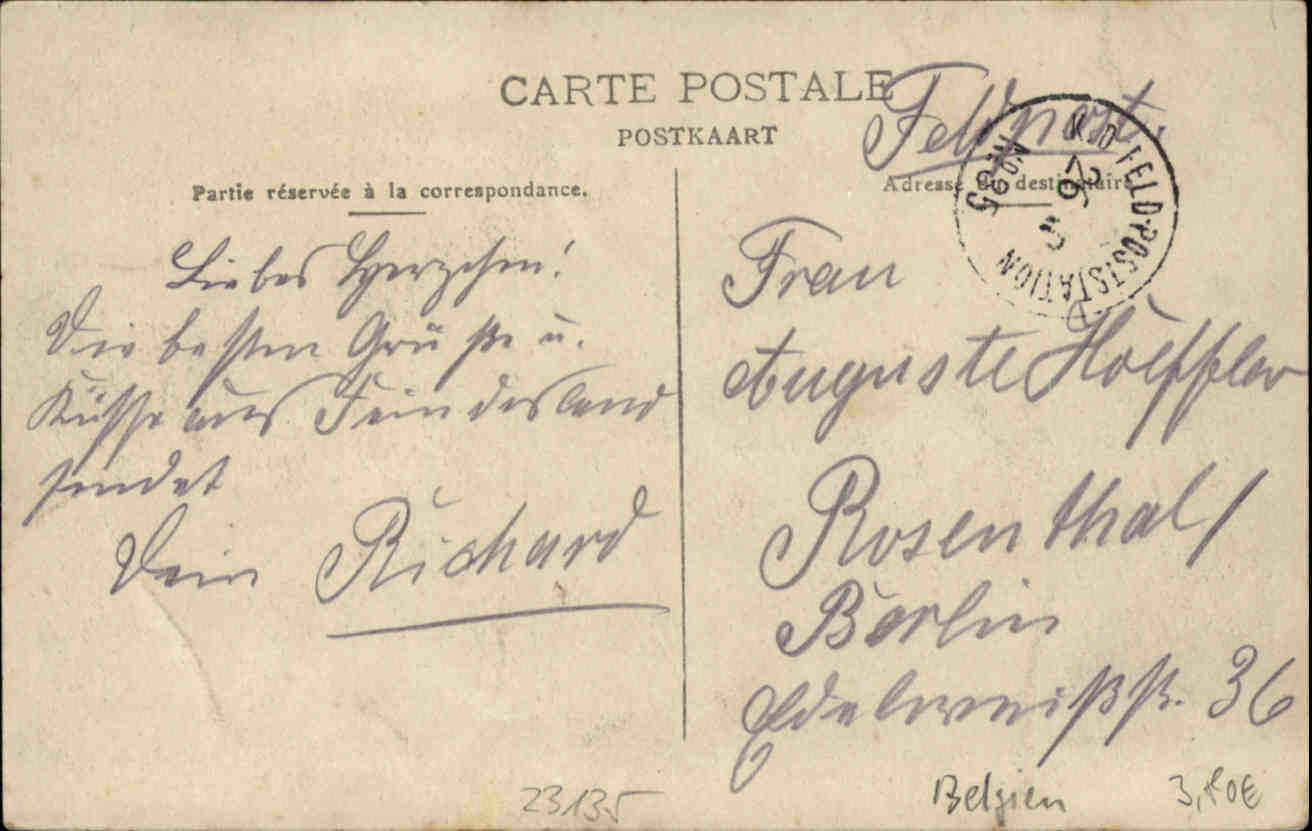 CARTE POSTALE
POSTKAART
Feldpost.
Partie réservée à la correspondance.
Adresse du destinataire
K.D. FELD-POSTSTATION
Liebes Herzchen!
Die besten Grüße u.
Küsse aus Feindesland
sendet
Dein Richard
Frau
Auguste Hoeffler
Rosenthal/
Berlin
Edelweißstr. 36
23135
Belgien